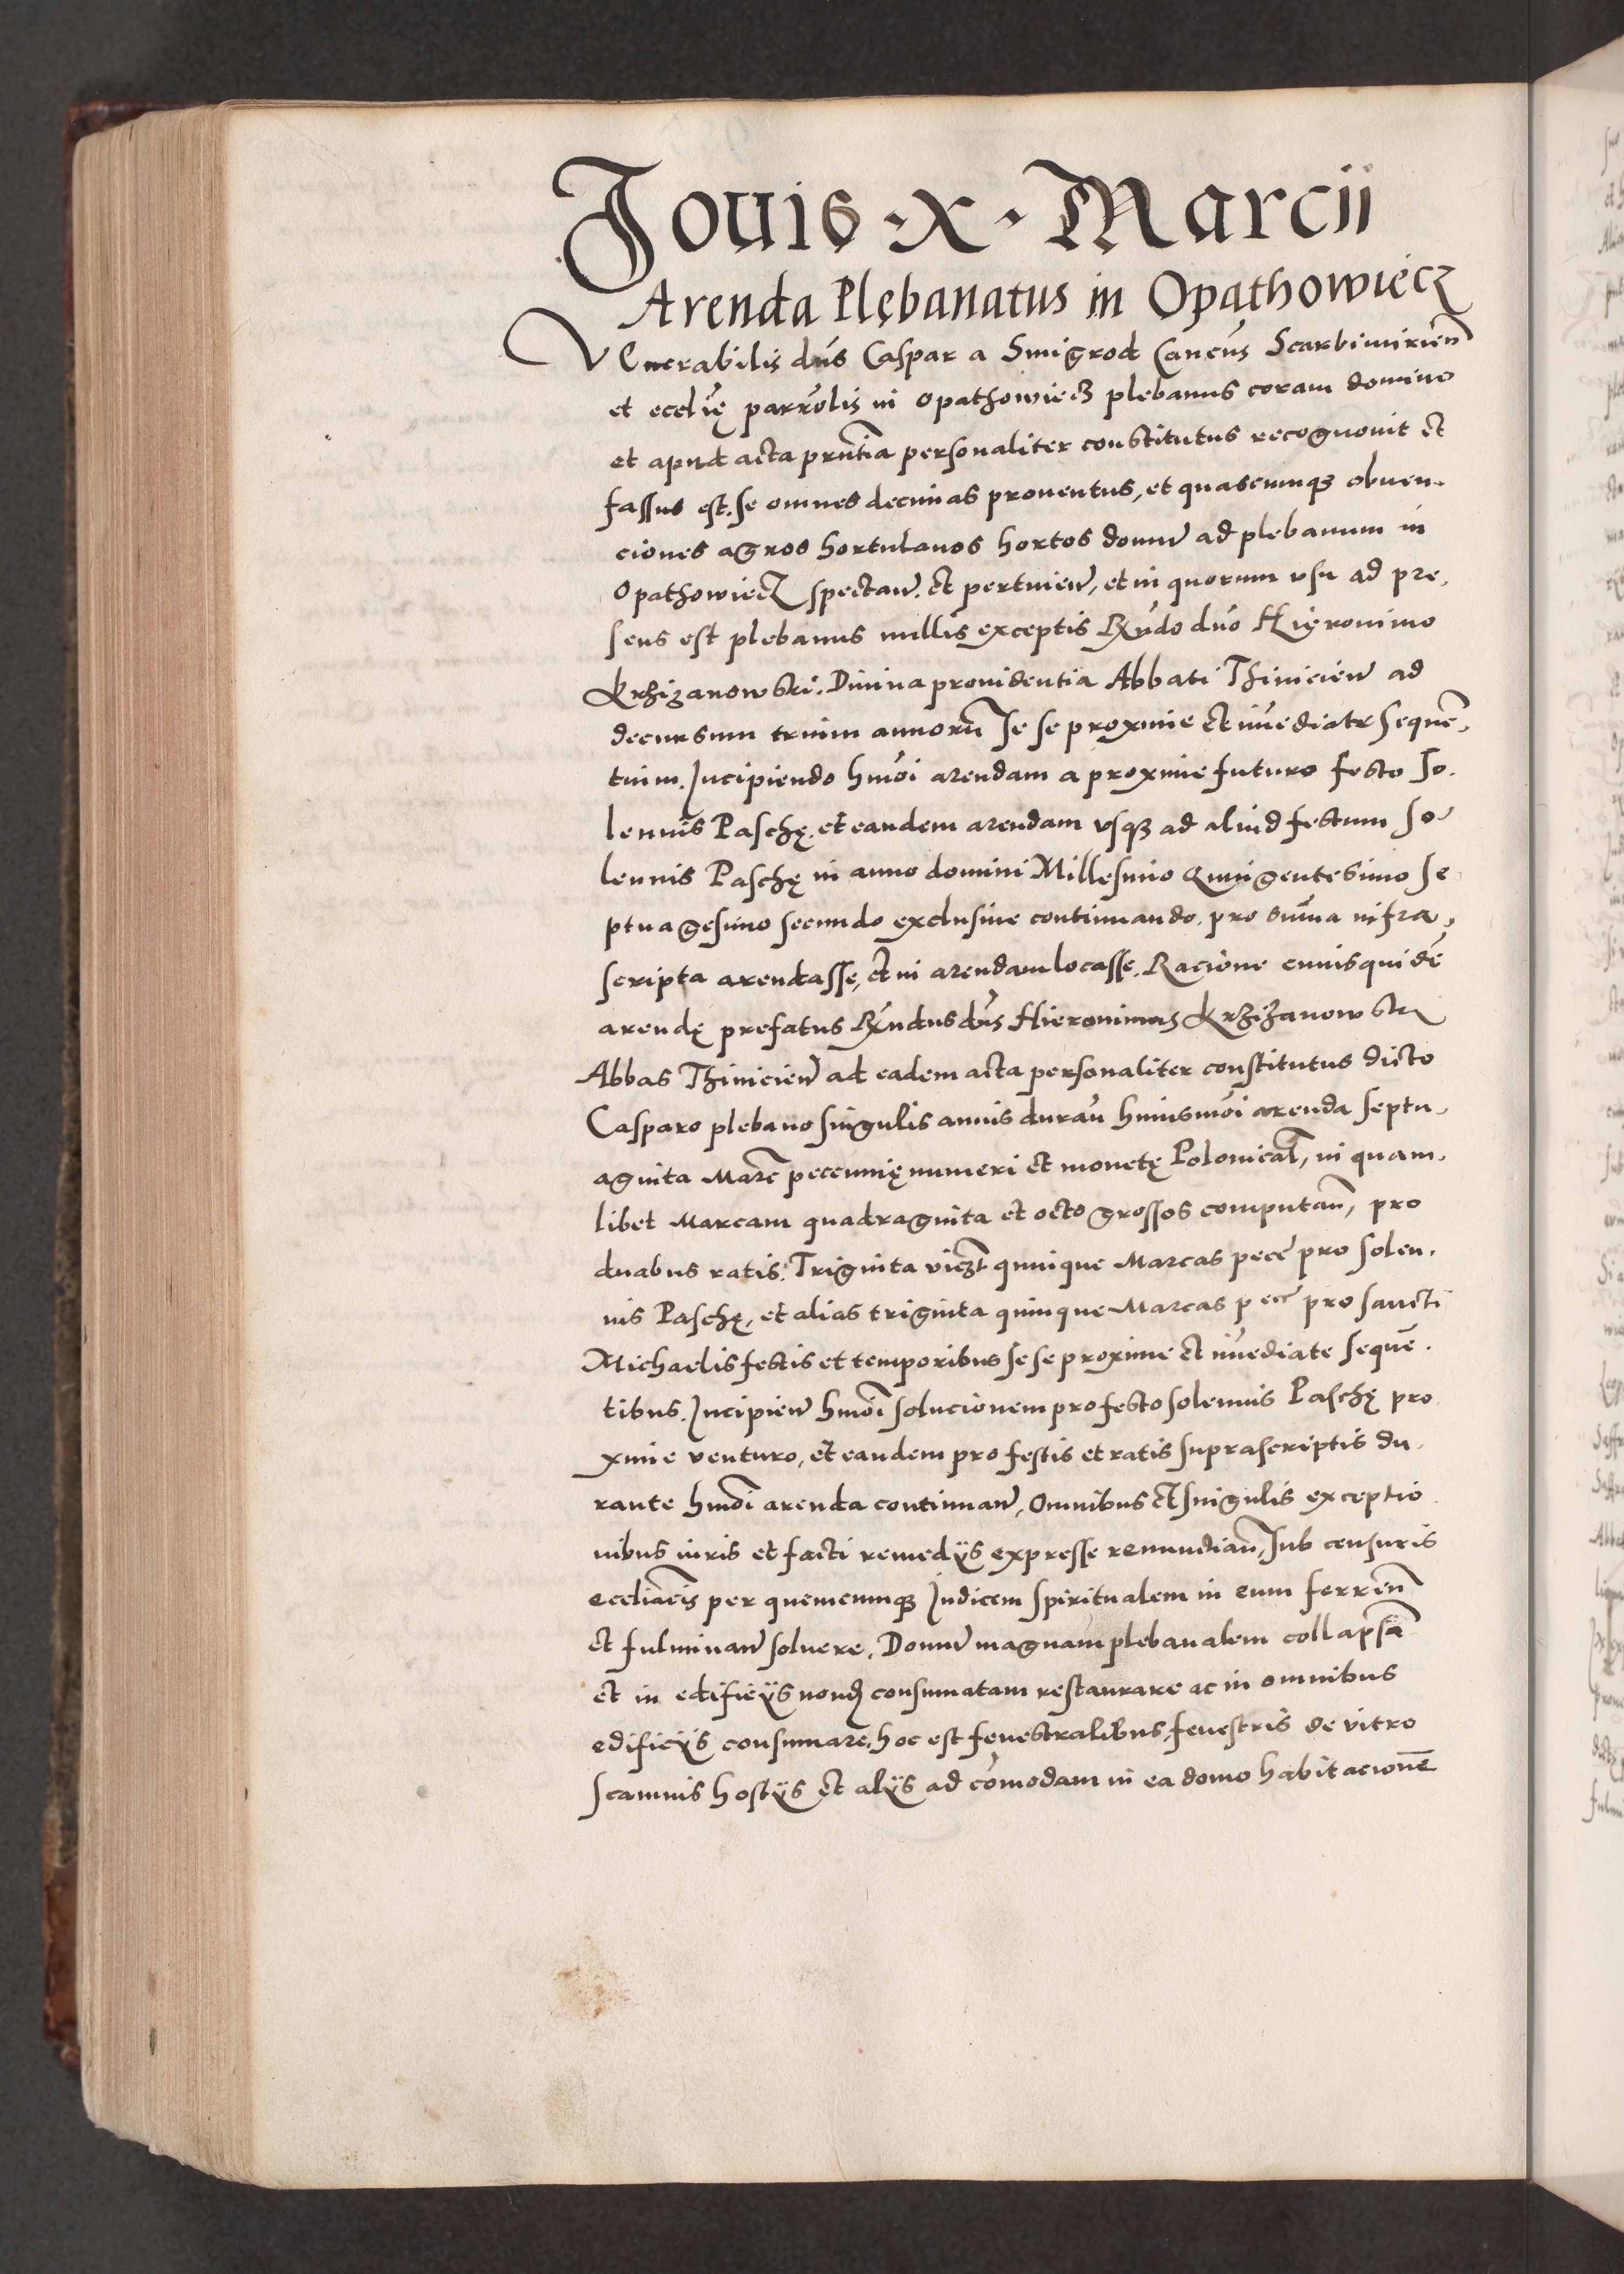 Jouis · X · Marcii
Arenda Plębanatus in Opathowiecz
VEnerabilis dn̄s Caspar a Smigrod Cancūs Scarbimirien̄
et eccl̄ię parrōlis in Opathowiecz plebanus coram domino
et apud acta prn̄tia personaliter constitutus recognouit et
fassus est. se omnes decimas prouentus, et quascumqꝫ obuen-
ciones agros hortulanos hortos domū ad plebanum in
Opathowiecz spectan̄. et pertinen̄, et in quorum vsu ad pre-
sens est plebanus nullis exceptis Rn̄do dn̄o Hięronimo
Krzizanowski. Diuina prouidentia Abbati Thinicien̄ ad
decursum trium annorū se se proximie et im̄ediate sequē-
tium. Incipiendo hmōi arendam a proximie futuro festo so-
lennis Paschę, et eandem arendam vsqꝫ ad aliud festum so-
lennis Paschę in anno domini Millesimo Quingentesimo se-
ptuagesimo secundo exclusiue continuando. pro sum̄a infra-
scripta arendasse, et in arendam locasse. Racione cuiusquidē
arendę prefatus Rn̄dus dn̄s Hieronimus Krzizanowski
Abbas Thinicien̄ ad eadem acta personaliter constitutus dicto
Casparo plebano singulis annis duran̄ huiusmōi arenda septu-
aginta Marc̄ peccunię numeri et monetę Polonical̄, in quam-
libet Marcam quadraginta et octo grossos computan̄, pro
duabus ratis. Triginta viczt̄ quinque Marcas pecc̄ pro solen-
nis Paschę, et alias triginta quinque Marcas pecc̄ pro sancti
Michaelis festis et temporibus se se proxime et im̄ediate sequē-
tibus. Incipien̄ hmōi solucionem pro festo solennis Paschę pro
ximie venturo, et eandem pro festis et ratis suprascriptis du-
rante hmōi arenda continuan̄, Omnibus et singulis exceptio
nibus iuris et facti remedijs expresse renundian̄, sub censuris
eccliācis per quemcumqꝫ Iudicem spiritualem in eum ferren̄
et fulminan̄ soluere. Domū magnam plebanalem collapsā
et in edificijs nondꝫ consumatam restaurare ac in omnibus
edificijs consumare, hoc est fenestralibus, fenestris de vitro
scamnis hostijs et alijs ad com̄odam in ea domo habitacionē